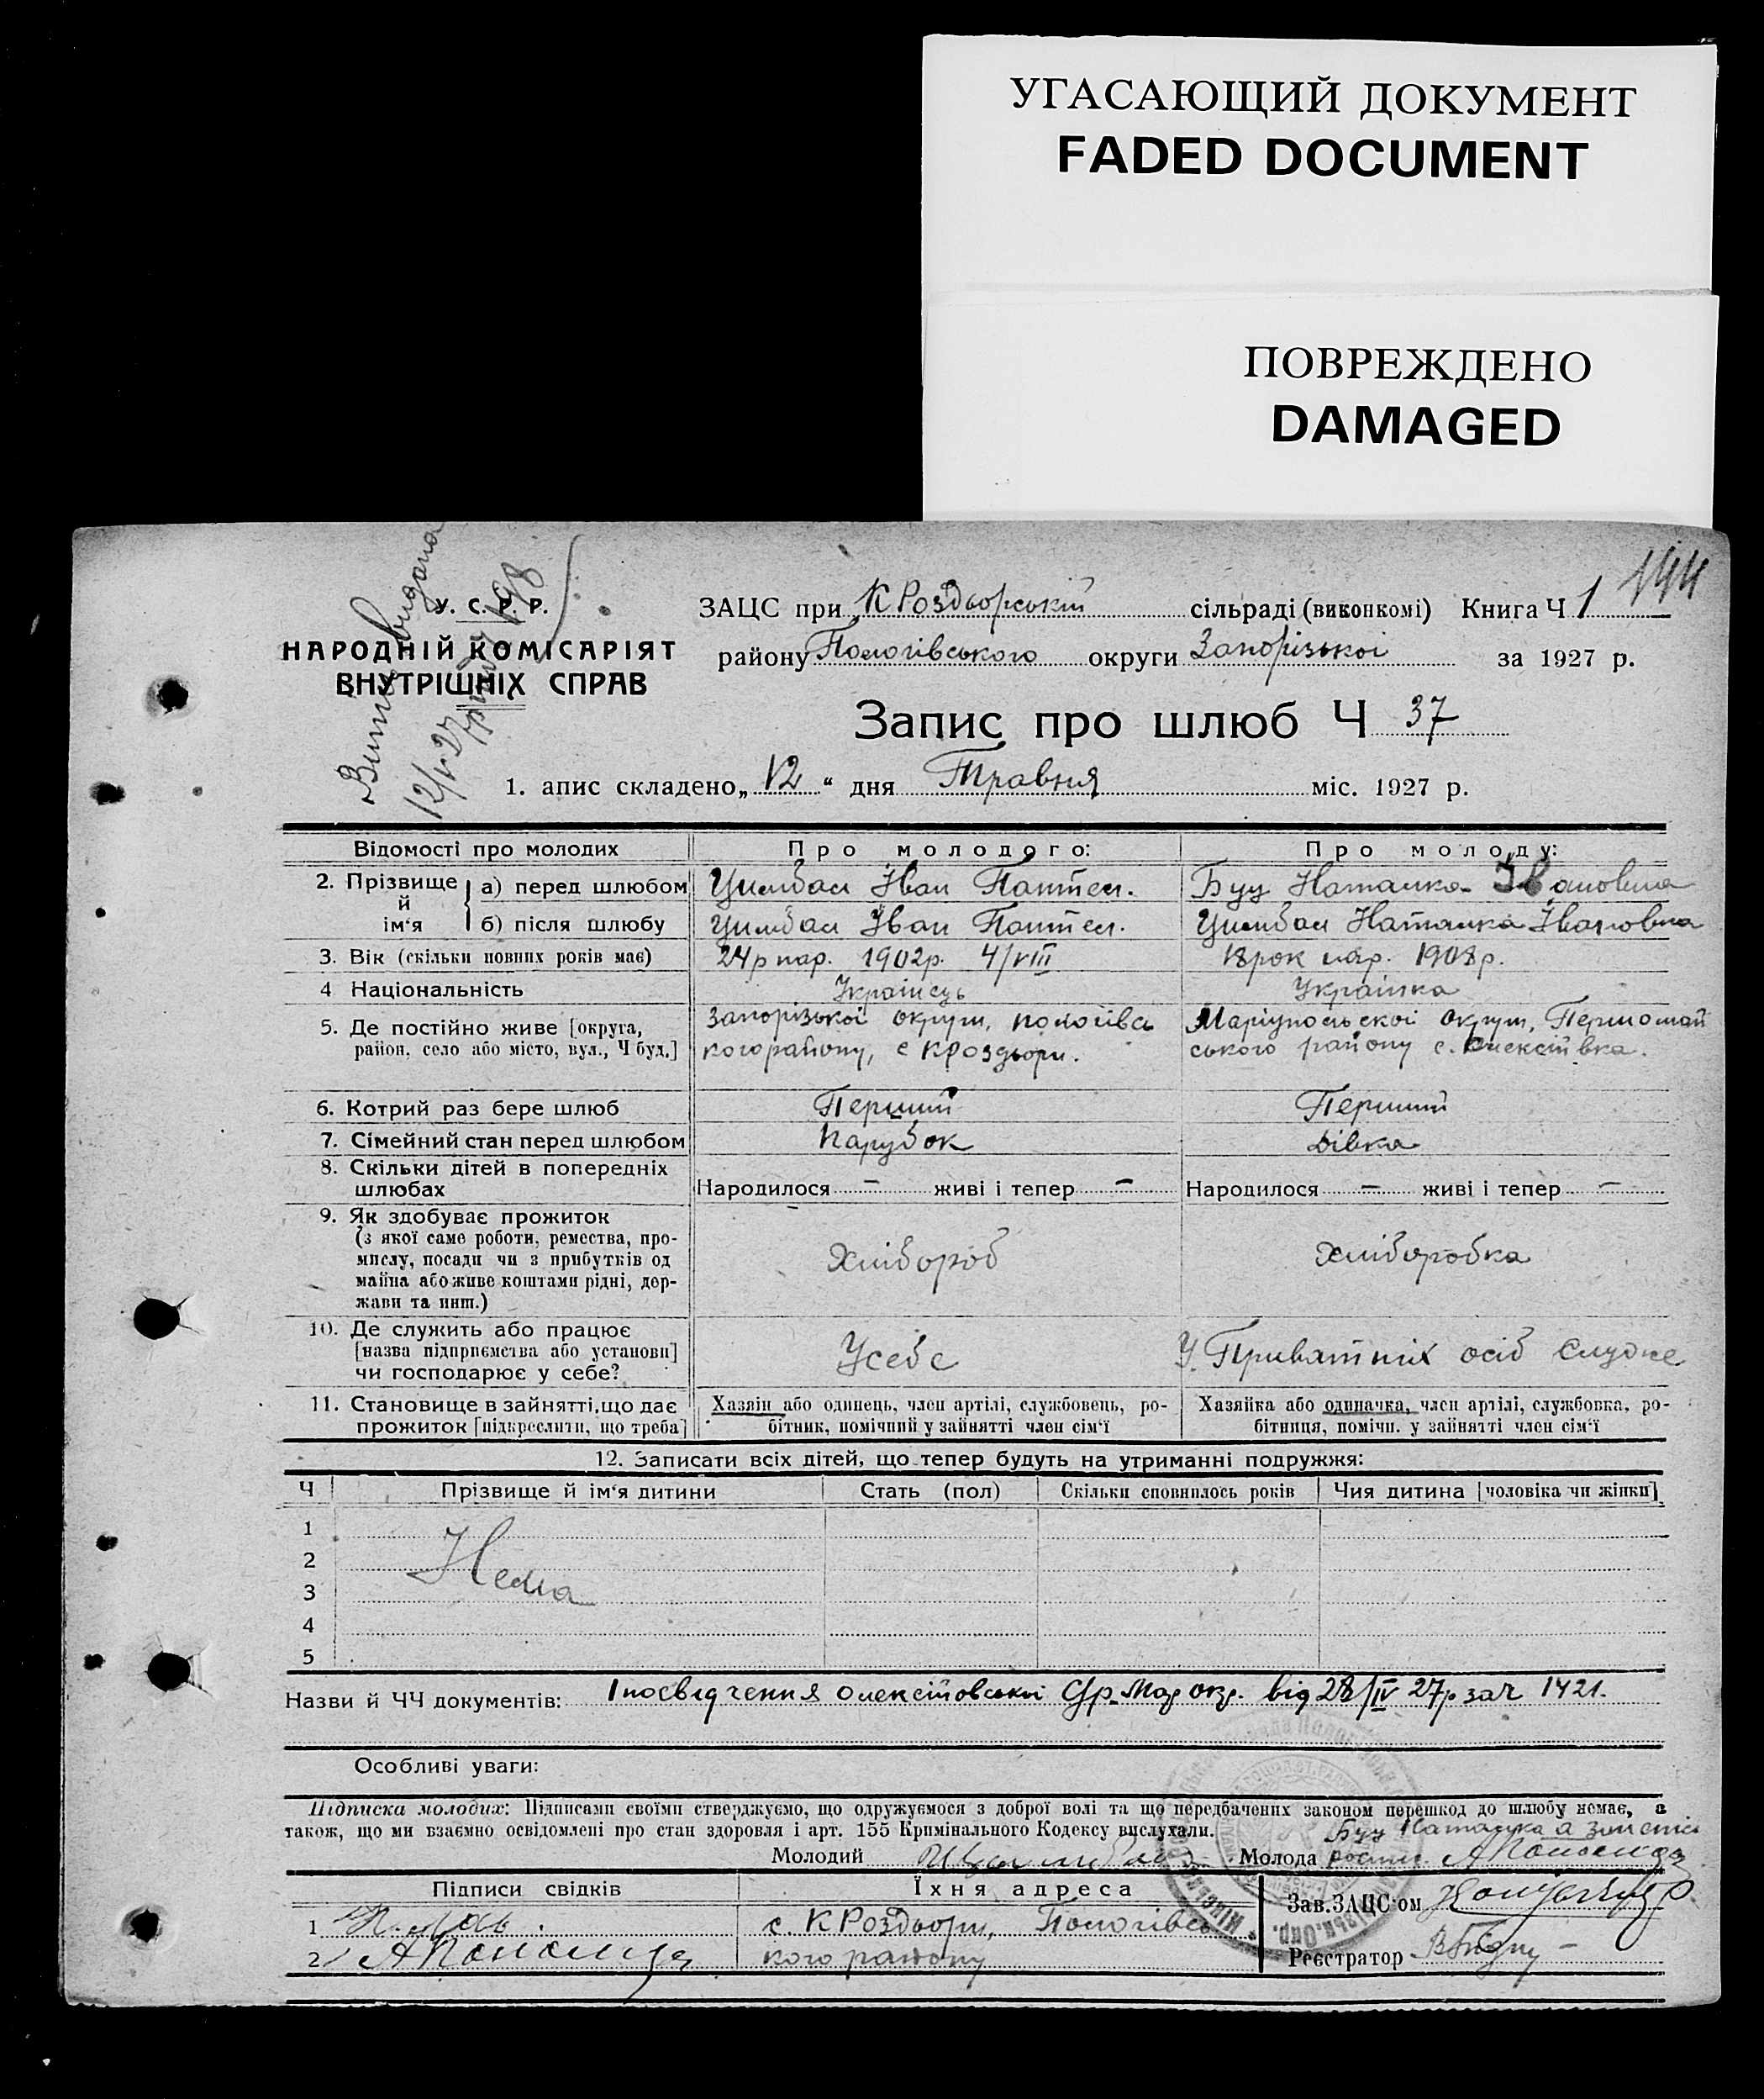 УГАСАЮЩИЙ ДОКУМЕНТ
FADED DOCUMENT
ПОВРЕЖДЕНО
DAMAGED
144
Витяг видано
12/V 27
У. С. Р. Р.
НАРОДНІЙ КОМІСАРІЯТ
ВНУТРІШНІХ СПРАВ
ЗАЦС при К Роздворській сільраді (виконкомі) Книга Ч 1
району Пологівського округи Запорізької за 1927 р.
Запис про шлюб Ч 37
1. апис складено „ 12 “ дня Травня міс. 1927 р.
Відомості про молодих Про молодого: Про молоду:
2. Прізвище й ім‘я а) перед шлюбом Цимбал Іван Пантел. Буц Наталка Івановна
б) після шлюбу Цимбал Іван Пантел. Цимбал Наталка Івановна
3. Вік (скільки повних років має) 24 р нар. 1902 р. 4/VIII 18 рок нар. 1908 р.
4 Національність Українець Українка
5. Де постійно живе [округа, Запорізької округи, пологівсь Маріупольскої округи, Першомай
район, село або місто, вул., Ч буд.] кого району, с К роздори. ського району с. Олексіївка.
6. Котрий раз бере шлюб Перший Перший
7. Сімейний стан перед шлюбом Парубок Дівка
8. Скільки дітей в попередніх
шлюбах Народилося — живі і тепер — Народилося — живі і тепер —
9. Як здобуває прожиток
(з якої саме роботи, ремества, про-
мислу, посади чи з прибутків од Хлібороб Хліборобка
майна або живе коштами рідні, дер-
жави та инш.)
10. Де служить або працює
[назва підприємства або установи] Усебе У Приватніх осіб служе
чи господарює у себе?
11. Становище в зайнятті, що дає Хазяін або одинець, член артілі, службовець, ро- Хазяйка або одиначка, член артілі, службовка, ро-
прожиток [підкреслити, що треба] бітник, помічний у зайнятті член сім‘ї бітниця, помічн. у зайнятті член сім‘ї
12. Записати всіх дітей, що тепер будуть на утриманні подружжя:
Ч Прізвище й ім‘я дитини Стать (пол) Скільки сповнилось років Чия дитина [чоловіка чи жінки]
1
2 Нема
3
4
5
Назви й ЧЧ документів: Посвідчення олексіївської С/р. Мар окр. від 28/IV 27 р за ч 1421.
Особливі уваги:
Підписка молодих: Підписами своїми стверджуємо, що одружуємося з доброї волі та що передбачених законом перешкод до шлюбу немає, а
також, що ми взаємно освідомлені про стан здоровля і арт. 155 Кримінального Кодексу вислухали. Буц Наталка а
Молодий Молода
Підписи свідків Їхня адреса Зав. ЗАЦС‘ом
1 с. К Роздори, Пологівсь
2 кого району Реєстратор